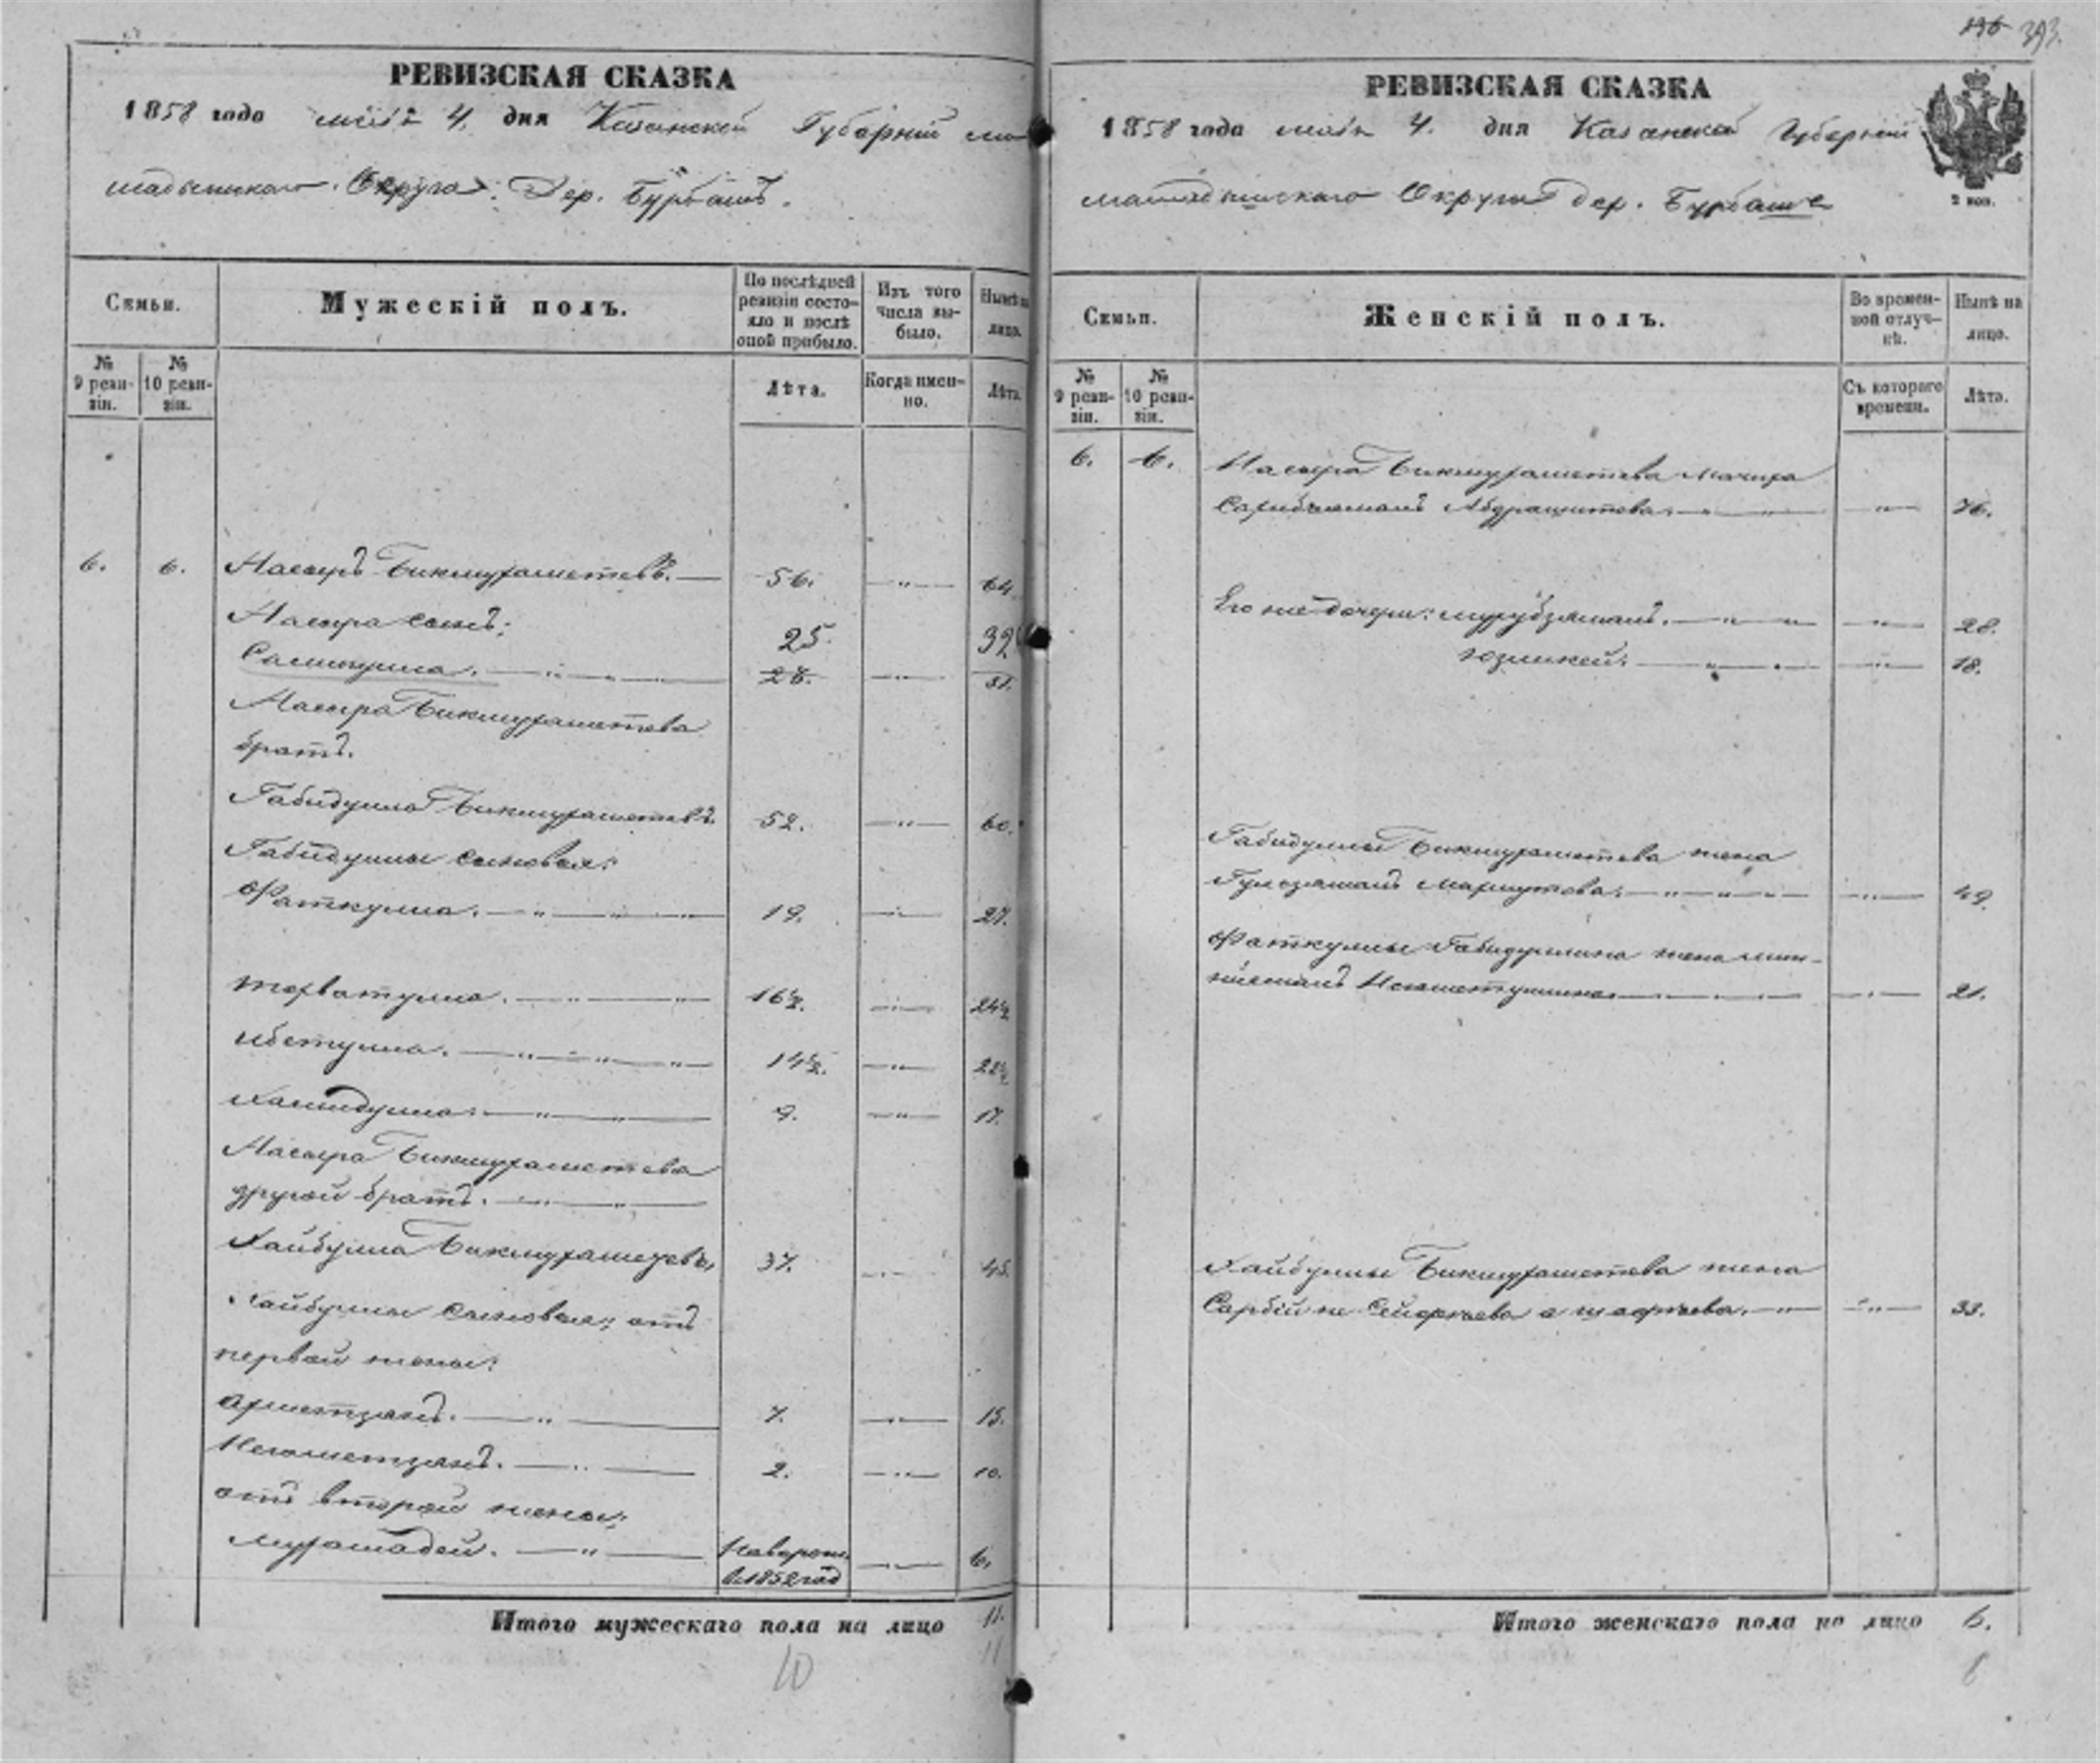 РЕВИЗСКАЯ СКАЗКА
1858 года мая 4. дня Казанской Губерніи ма
мадышскаго Округа: Дер. Бурбашъ.
Семьи.
Мужескій полъ.
По послѣдней ревизіи состояло и послѣ оной прибыло.
Изъ того числа выбыло.
Нынѣ на лицо.
№ 9 ревизіи.
№ 10 ревизіи.
Лѣта.
Когда именно.
Лѣта.
6. 6. Насыръ Бикмухаметевъ. 56. 64
Насыра сынъ: 25 32
Салимулла. 51.
Насыра Бикмухаметева
братъ.
Габидулла Бикмухаметевъ. 52. 60.
Габидуллы сыновья:
Фаткулла. 19. 27.
16½. 24½
14½. 22½
Хамидулла. 9. 17.
Насыра Бикмухаметева
другой братъ.
Хайбулла Бикмухаметевъ, 37. 45.
Хайбуллы сыновья: отъ
первой жены:
Ахметзянъ. 7. 15.
Негаметзянъ. 2. 10.
отъ второй жены:
Мухамадей. 6.
в 1852 год
Итого мужескаго пола на лицо 11.
10 11
393.
РЕВИЗСКАЯ СКАЗКА
1858 года мая 4. дня Казанской Губерніи
мамадышскаго Округа дер. Бурбаше
2 коп.
Семьи.
Женскій полъ.
Во временной отлучкѣ.
Нынѣ на лицо.
№ 9 ревизіи.
№ 10 ревизіи.
Съ котораго времени.
Лѣта.
6. 6. Насыра Бикмухаметева мачиха
Абдрашитова. 76.
Его же дочери: 28.
18.
Габидуллы Бикмухаметева жена
49.
Фаткуллы Габидуллина жена мин-
21.
Хайбуллы Бикмухаметева жена
не а 33.
Итого женскаго пола на лицо 6.
6